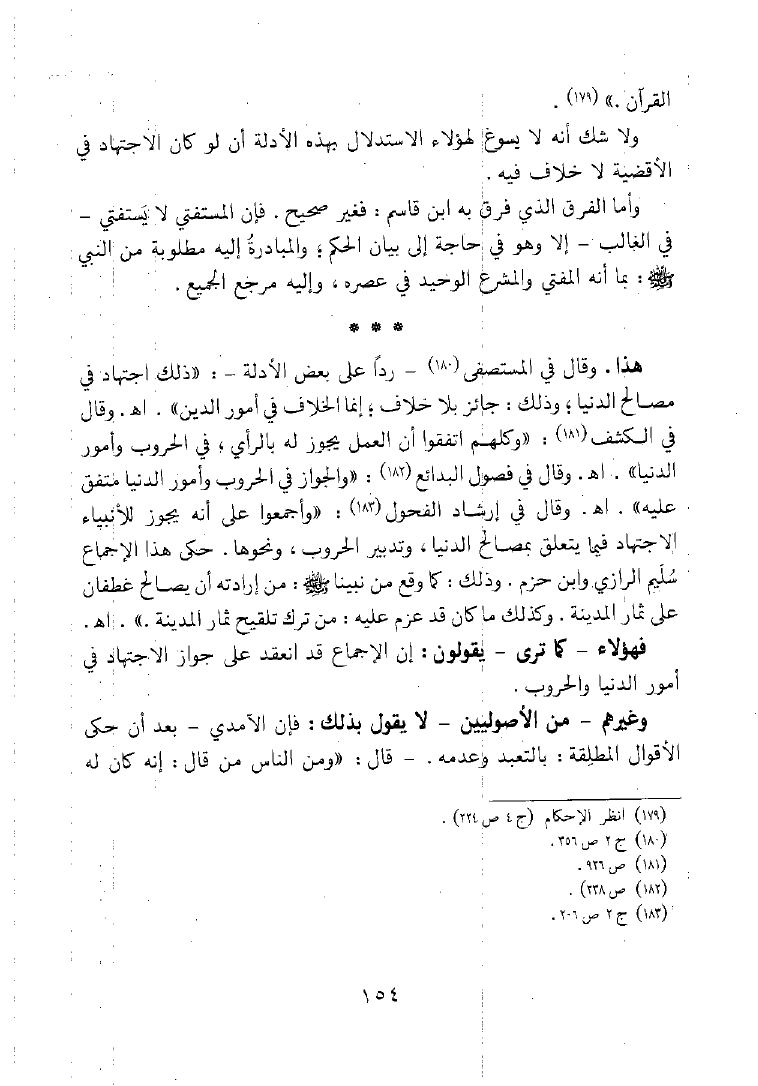 القرآن .» (١٧٩) .
ولا شك أنه لا يسوغ لهؤلاء الاستدلال بهذه الأدلة أن لو كان الاجتهاد في
الأقضية لا خلاف فيه .
وأما الفرق الذي فرق به ابن قاسم : فغير صحيح . فإن المستفتي لا يَستفتي –
في الغالب – إلا وهو في حاجة إلى بيان الحكم ؛ والمبادرةُ إليه مطلوبة من النبي
ﷺ : بما أنه المفتي والمشرع الوحيد في عصره ، وإليه مرجع الجميع .
* * *
هذا . وقال في المستصفى (١٨٠) – رداً على بعض الأدلة – : «ذلك اجتهاد في
مصالح الدنيا ؛ وذلك : جائز بلا خلاف ؛ إنما الخلاف في أمور الدين» . اهـ . وقال
في الكشف (١٨١) : «وكلهم اتفقوا أن العمل يجوز له بالرأي ، في الحروب وأمور
الدنيا» . اهـ . وقال في فصول البدائع (١٨٢) : «والجواز في الحروب وأمور الدنيا متفق
عليه» . اهـ . وقال في إرشاد الفحول (١٨٣) : «وأجمعوا على أنه يجوز للأنبياء
الاجتهاد فيما يتعلق بمصالح الدنيا ، وتدبير الحروب ، ونحوها . حكى هذا الإجماع
سُلَيم الرازي وابن حزم . وذلك : كما وقع من نبينا ﷺ : من إرادته أن يصالح غطفان
على ثمار المدينة . وكذلك ما كان قد عزم عليه : من ترك تلقيح ثمار المدينة .» . اهـ .
فهؤلاء – كما ترى – يقولون : إن الإجماع قد انعقد على جواز الاجتهاد في
أمور الدنيا والحروب .
وغيرهم – من الأصوليين – لا يقول بذلك : فإن الآمدي – بعد أن حكى
الأقوال المطلِقة : بالتعبد وعدمه . – قال : «ومن الناس من قال : إنه كان له
(١٧٩) انظر الإحكام (ج ٤ ص ٢٢٤) .
(١٨٠) ج ٢ ص ٣٥٦ .
(١٨١) ص ٩٢٦ .
(١٨٢) ص ٢٣٨) .
(١٨٣) ج ٢ ص ٢٠٦ .
١٥٤